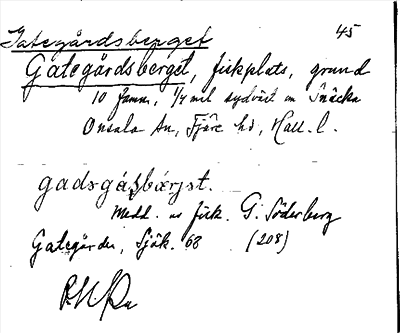 Gategårdsberget 45
Gategårdsberget, fiskplats, grund
10 famn, 1/4 mil sydväst om Snäcka
Onsala sn, Fjäre hd, Hall. l.
gadsgásbærjst.
Medd. av fisk. G. Söderberg
Gategården, Sjök. 68 (208)